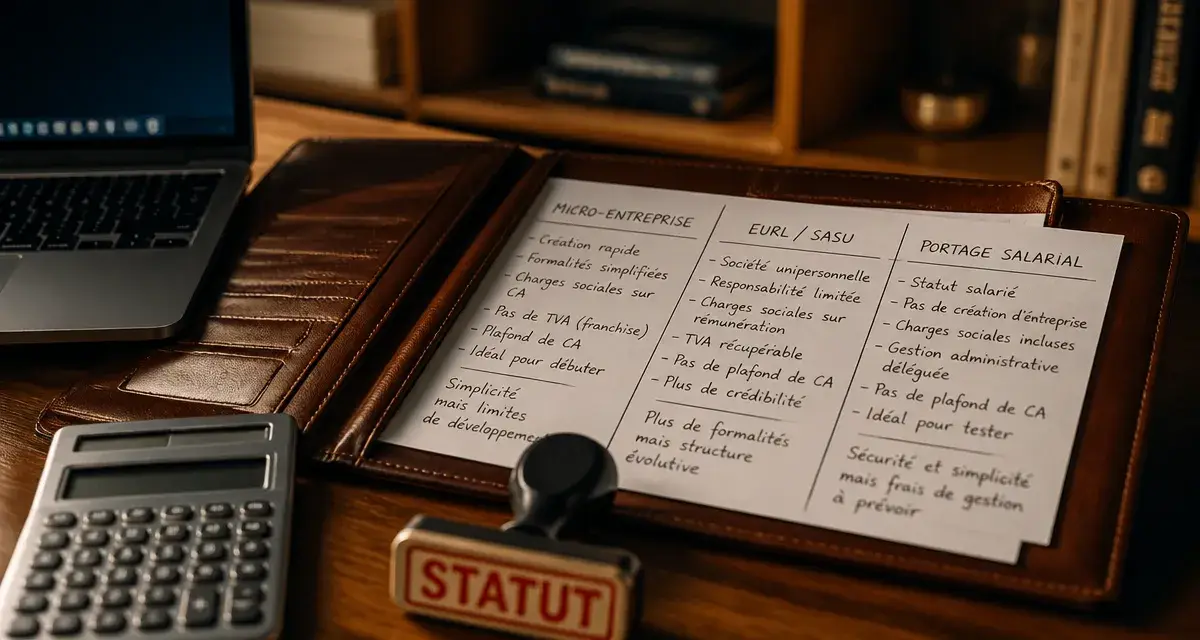 MICRO-ENTREPRISE
- Création rapide
- Formalités simplifiées
- Charges sociales sur
CA
- Pas de TVA (franchise)
- Plafond de CA
- Idéal pour débuter
Simplicité
mais limites
de développeme
EURL / SASU
- Société unipersonnelle
- Responsabilité limitée
- Charges sociales sur
rémunération
- TVA récupérable
- Pas de plafond de CA
- Plus de crédibilité
Plus de formalités
mais structure
évolutive
PORTAGE SALARIAL
- Statut salarié
- Pas de création d'entreprise
- Charges sociales incluses
- Gestion administrative
déléguée
- Pas de plafond de CA
- Idéal pour tester
Sécurité et simplicité
mais frais de gestion
à prévoir
STATUT